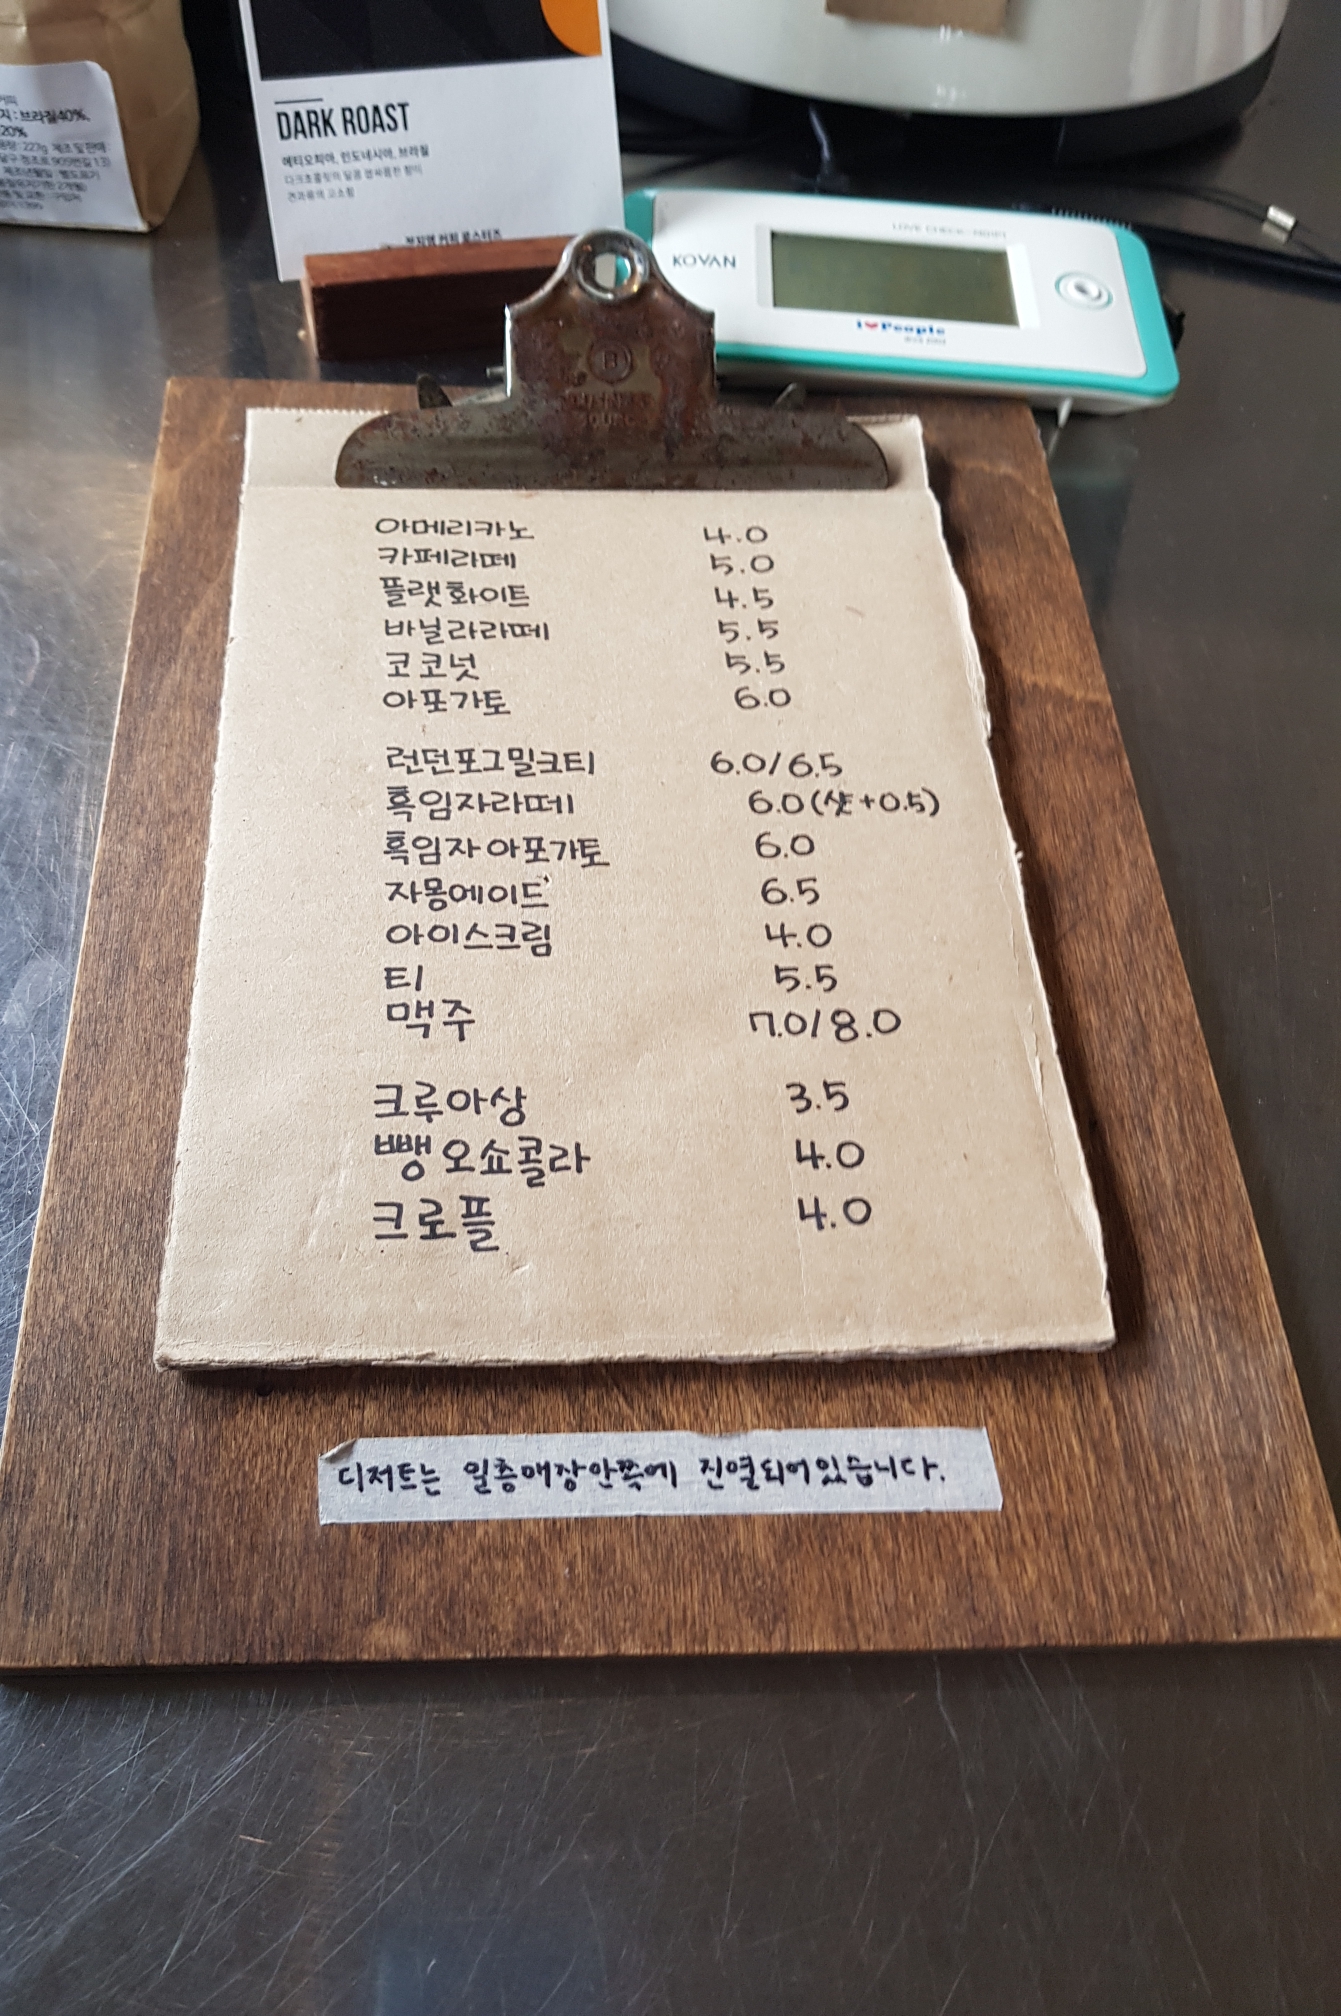 지 : 브라질40%,
20%
227g 제조 및 판매
DARK ROAST
에티오피아, 인도네시아, 브라질
다크초콜릿의 달콤 쌉싸름한 향미
견과류의 고소함
커피 로스터즈
KOVAN
i❤People
아메리카노 4.0
카페라떼 5.0
플랫화이트 4.5
바닐라라떼 5.5
코코넛 5.5
아포가토 6.0
런던포그밀크티 6.0/6.5
흑임자라떼 6.0(샷+0.5)
흑임자 아포가토 6.0
자몽에이드 6.5
아이스크림 4.0
티 5.5
맥주 7.0/8.0
크루아상 3.5
빵오쇼콜라 4.0
크로플 4.0
디저트는 일층매장안쪽에 진열되어있습니다.